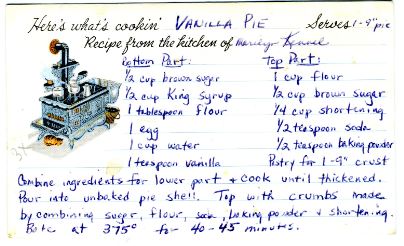 Here's what's cookin' VANILLA PIE Serves 1-9" pie
Recipe from the kitchen of Marilyn
Bottom Part: Top Part:
1/2 cup brown sugar 1 cup flour
1/2 cup King Syrup 1/2 cup brown sugar
1 tablespoon flour 1/4 cup shortening
1 egg 1/2 teaspoon soda
1 cup water 1/2 teaspoon baking powder
1 teaspoon vanilla Pastry for 1-9" crust
Combine ingredients for lower part & cook until thickened.
Pour into unbaked pie shell. Top with crumbs made
by combining sugar, flour, soda, baking powder & shortening.
Bake at 375° for 40-45 minutes.